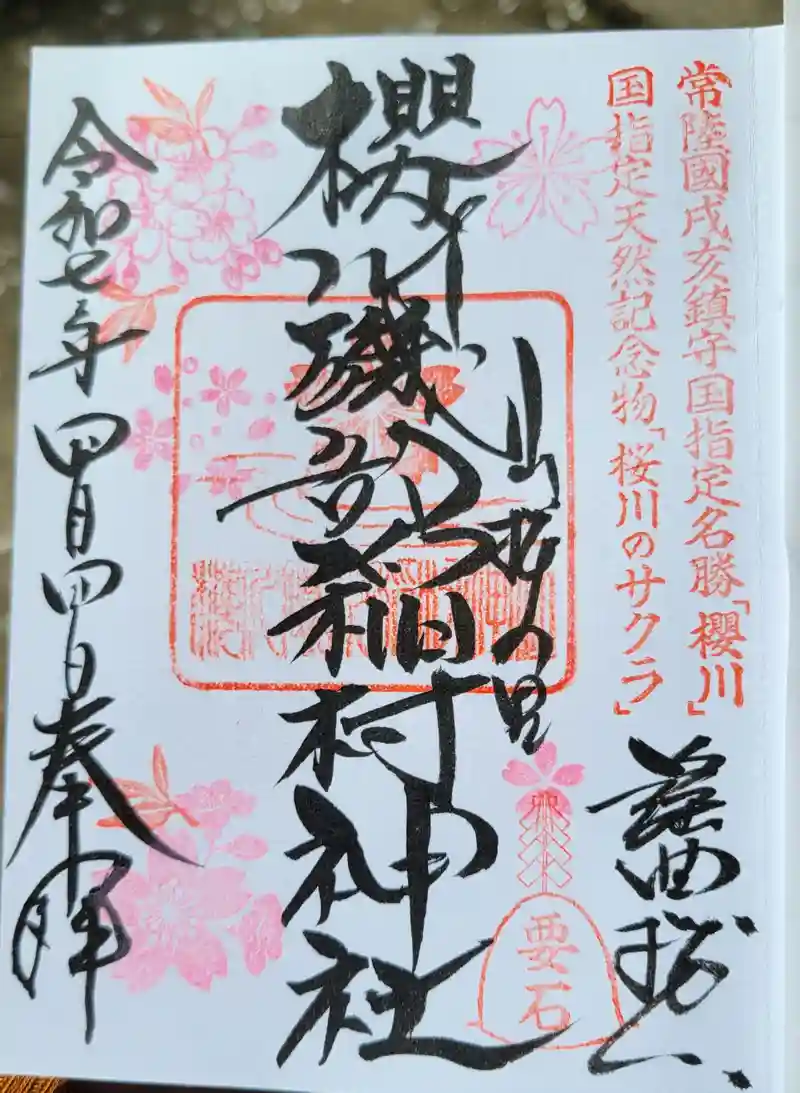 常陸國戌亥鎮守国指定名勝「櫻川」
国指定天然記念物「桜川のサクラ」
謡曲
要石
山桜の里
櫻川磯部稲村神社
令和七年四月四日奉拝